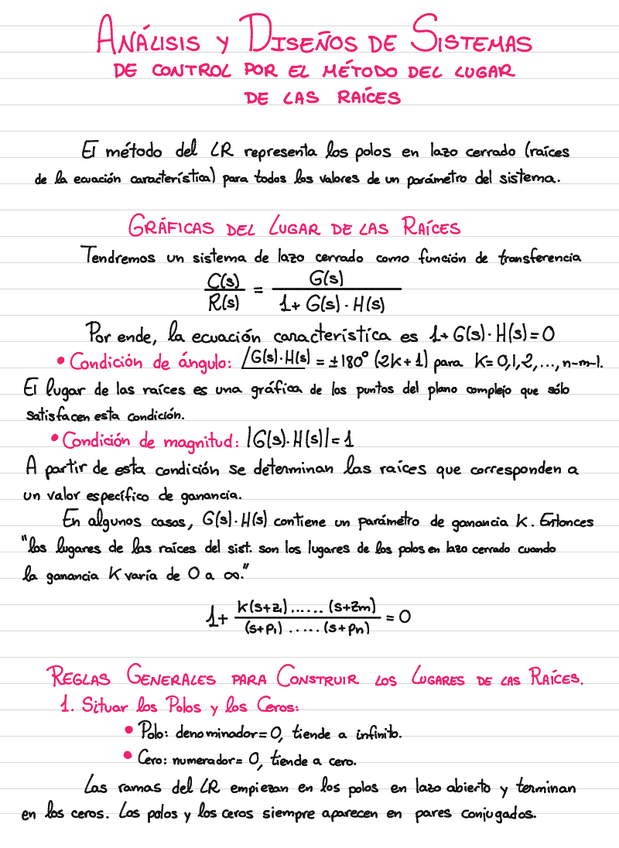 ANÁLISIS Y DISEÑOS DE SISTEMAS
DE CONTROL POR EL MÉTODO DEL LUGAR
DE LAS RAÍCES
El método del LR representa los polos en lazo cerrado (raíces
de la ecuación característica) para todos los valores de un parámetro del sistema.
GRÁFICAS DEL LUGAR DE LAS RAÍCES
Tendremos un sistema de lazo cerrado como función de transferencia
C(s)/R(s) = G(s)/(1+G(s)·H(s))
Por ende, la ecuación característica es 1+G(s)·H(s)=0
• Condición de ángulo: ∠G(s)·H(s) = ±180° (2k+1) para K=0,1,2,...,n-m-1.
El lugar de las raíces es una gráfica de los puntos del plano complejo que sólo
satisfacen esta condición.
• Condición de magnitud: |G(s)·H(s)|=1
A partir de esta condición se determinan las raíces que corresponden a
un valor específico de ganancia.
En algunos casos, G(s)·H(s) contiene un parámetro de ganancia K. Entonces
"los lugares de las raíces del sist. son los lugares de los polos en lazo cerrado cuando
la ganancia K varía de 0 a ∞."
1+ K(s+z₁)......(s+zm)/(s+p₁).....(s+pn) = 0
REGLAS GENERALES PARA CONSTRUIR LOS LUGARES DE LAS RAÍCES.
1. Situar los Polos y los Ceros:
• Polo: denominador=0, tiende a infinito.
• Cero: numerador=0, tiende a cero.
Las ramas del LR empiezan en los polos en lazo abierto y terminan
en los ceros. Los polos y los ceros siempre aparecen en pares conjugados.